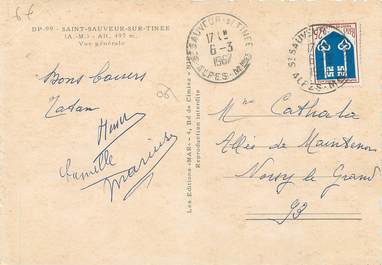 DP-99 - SAINT-SAUVEUR-SUR-TINEE
(A.-M.) - Alt. 497 m.
Vue générale
Bons baisers
Famille
Les Editions «MAR» - 4, Bd de Cimiez -
Reproduction interdite
ST SAUVEUR-S-TINEE
17 H
6-3
1967
ALPES-MMES
ST SAUV
ALPES-M
06
Mme Cathala
Allée de Maintenon
Noisy le Grand
93